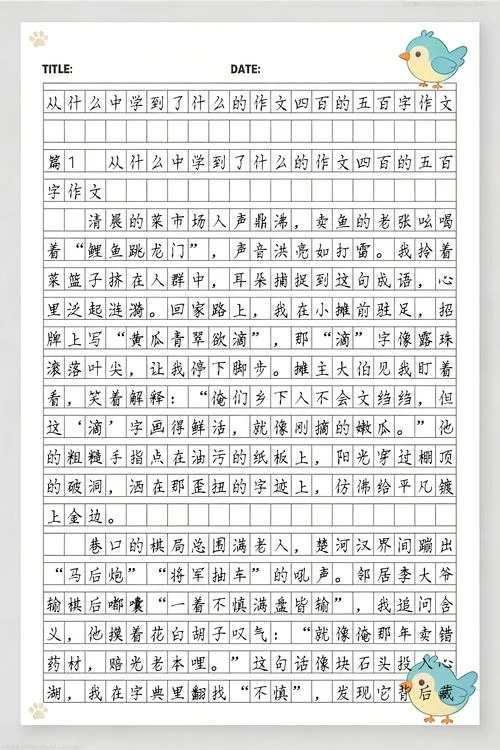 TITLE: DATE:
从什么中学到了什么的作文四百的五百字作文
篇1 从什么中学到了什么的作文四百的五百
字作文
清晨的菜市场人声鼎沸，卖鱼的老张吆喝
着“鲤鱼跳龙门”，声音洪亮如打雷。我拎着
菜篮子挤在人群中，耳朵捕捉到这句成语，心
里泛起涟漪。回家路上，我在小摊前驻足，招
牌上写“黄瓜青翠欲滴”，那“滴”字像露珠
滚落叶尖，让我停下脚步。摊主大伯见我盯着
看，笑着解释：“俺们乡下人不会文绉绉，但
这‘滴’字画得鲜活，就像刚摘的嫩瓜。”他
的粗糙手指点在油污的纸板上，阳光穿过棚顶
的破洞，洒在那歪扭的字迹上，仿佛给平凡镀
上金边。
巷口的棋局总围满老人，楚河汉界间蹦出
“马后炮”“将军抽车”的吼声。邻居李大爷
输棋后嘟囔“一着不慎满盘皆输”，我追问含
义，他摸着花白胡子叹气：“就像俺那年卖错
药材，赔光老本哩。”这句话像块石头投入心
湖，我在字典里翻找“不慎”，发现它背后藏